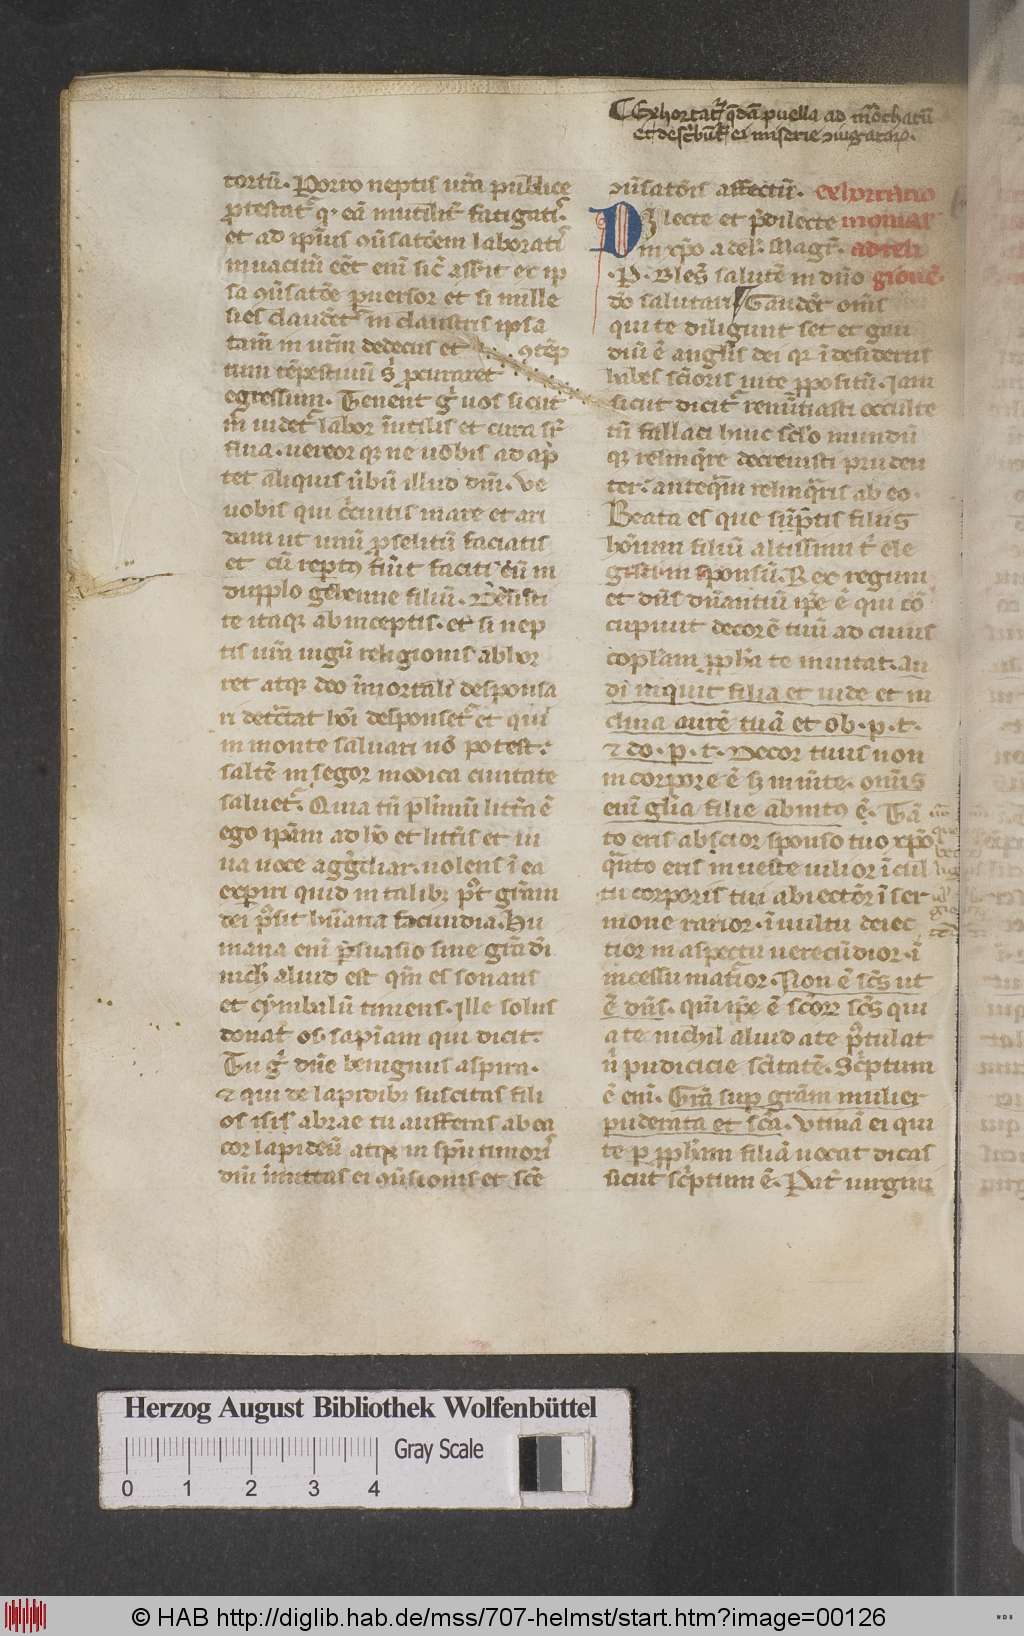 Exhortatᷣ q̄dā puella ad mōchatū
et desc̓būtᷣ ei miserie ꝯiugatorꝝ.
tortū. Porro neptis ur̄a publice
ꝓtestatᷣ qꝫ eā inutilit̓ fatigatis
et ad ipīus ꝯūsatōem laboratis
in uacuū cēt eni sic̓ asserit et ip
sa ꝯūsatōe peruersor et si mille
sies claudet̓ in claustris ipsā
tam̄ in ur̄m dedecus et ꝯtēp
tum tēpestiuū s̓ ꝓcuraret
egressum. Tenent g̓ uos sicut
m̄ uidetᷣ labor īutilis et cura su
flua. uereor qꝫ ne uobis ad ap̄
tet aliquis ūbū illud dn̄i. Ve
uobis qui c̓cuitis mare et ari
dam ut unū ꝓselitū faciatis
et cū reptꝰ fūit facitis eū in
dupplo gehenne filiū. Desisti
te itaqꝫ ab inceptis. et si nep
tis ur̄a iugū religionis abhor
ret atqꝫ deo īmortali desponsa
ri detc̄tat hoī desponsetᷣ et qui
in monte saluari nō potest.
saltē in segor modica ciuitate
saluetᷣ. Quia tn̄ plīmū littīa ē
ego ipam ad hō et litt̄is et ui
ua uoce agg̓diar. uolens ī ea
experiri quid in talibꝫ p̄t gr̄am
dei p̄sit hūana facundia. Hu
mana eni p̄suasio sine grā dī
nich̓ aliud est qm̄ es sonans
et cymbalū tinniens. Ille solus
donat os. sapīam qui dicit.
Tu g̓ dn̄e benignus aspira.
⁊ qui de lapidibꝫ suscitas fili
os isis abrae tu aufferas ab ea
cor lapideū atqꝫ in sp̄u timoris
dn̄i īmittas ei ꝯūsionis et scē
ꝯūsatōis affectū. exhortatio
Dilecte et p̄dilecte monial'
in xp̄o adel'. Magr̄. ad reli
.P. Bles̄ salutē in dn̄o gionē.
dō salutari. Gaudēt om̄s
qui te diligunt set et gau
diū ē anglis dei qꝫ ī desideriis
habes scīoris uite ꝓpositū. Iam
sicut dicitᷣ renūtiasti occulte
tn̄ fallaci huic sc̄lo mundū
qꝫ relinq̄re decreuisti pruden
ter. anteq̄m relinq̄ris ab eo.
Beata es que sūptis filiis
hoīum filiū altissimi t̓ ele
gisti in sponsū. Rex regum
et dn̄s dn̄antiū ip̄e ē qui cō
cupiuit decorē tuū ad cuius
coplam ꝓph̄a te inuitat. au
di inquit filia et uide et in
clina aurē tuā et ob. p. t.
⁊ do. p. t. Decor tuus non
in corpore ē sꝫ in mīte. omīs
eni glīa filie ab intꝰ ē. Tā
to eris abscior sponso tuo xp̄o
q̄nto eris in ueste uilior ī cul
tu corporis tui abiectōr ī ser
mone rarior. ī uultu deiec
tior in aspectu uerecūdior. ī
incessu matᷣior. Non ē scs̄ ut
ē dn̄s. qm̄ ip̄e ē scōrꝝ scs̄ qui
a te nichil aliud a te p̄tulat
n̓ pudicicie scitatē. Sc̓ptum
ē eni. Grā sup gr̄am mulier
puderata et scā. Vtinā ei qui
te p ꝓph̄am filiā uocat dicas
sicut sc̓ptum ē. Pat̓ uirgini
Herzog August Bibliothek Wolfenbüttel
Gray Scale
0 1 2 3 4
© HAB http://diglib.hab.de/mss/707-helmst/start.htm?image=00126